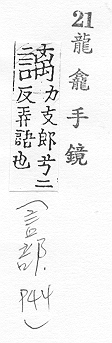 21
龍龕手鏡
謧
力支郎兮二
反弄語也
(言部.
P44)